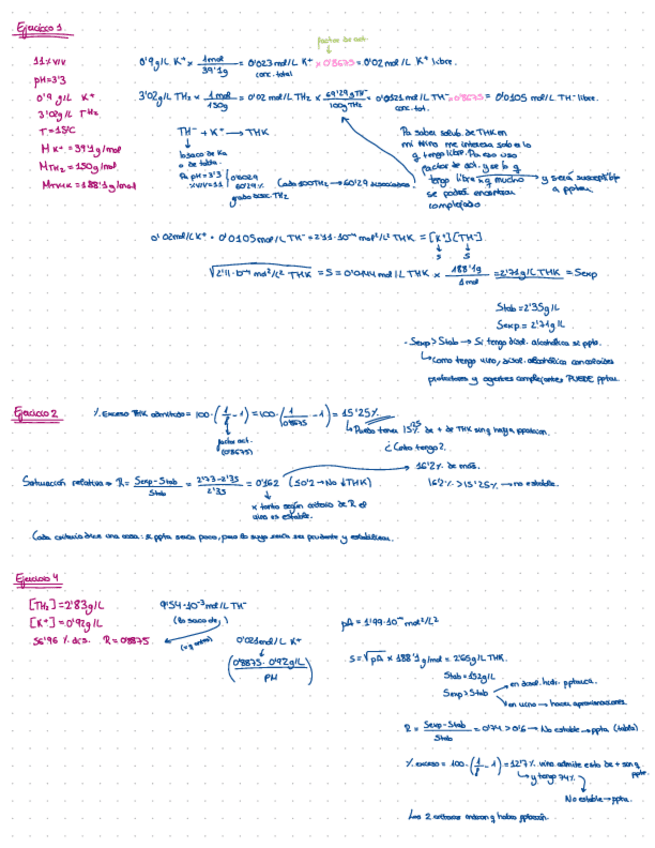 Ejercicio 1
factor de act.
11% v/v
pH=3'3
0'9 g/L K⁺
3'02g/L TH₂
T=15ºC
M K⁺ = 39'1g/mol
M TH₂ = 150g/mol
M THK = 188'1g/mol
0'9 g/L K⁺ × 1mol / 39'1g = 0'023 mol/L K⁺ × 0'8675 = 0'02 mol/L K⁺ libre.
conc. total
3'02g/L TH₂ × 1mol / 150g = 0'02 mol/L TH₂ × 60'29g TH⁻ / 100g TH₂ = 0'0121 mol/L TH⁻ × 0'8675 = 0'0105 mol/L TH⁻ libre.
conc. tot.
TH⁻ + K⁺ → THK
lo saco de Ka
o de tabla.
Pa pH=3'3
%v/v=11
0'6029
60'29%
grado disoc TH₂
Cada 100TH₂ → 60'29 disociadas.
Pa saber solub. de THK en
mi vino me interesa sab lo
q tengo libre. Pa eso uso
factor de act. y se lo q
tengo libre xq mucho
se podrá encontrar
complejado.
y será susceptible
a pptar.
0'02mol/L K⁺ · 0'0105mol/L TH⁻ = 2'11·10⁻⁴ mol²/L² THK = [K⁺][TH⁻]
S S
√2'11·10⁻⁴ mol²/L² THK = S = 0'0144 mol/L THK × 188'1g / 1mol = 2'71g/L THK = Sexp
Stab = 2'35g/L
Sexp = 2'71g/L
- Sexp > Stab → Si tengo disol. alcohólica sí ppta.
↳ como tengo vino, disol. alcohólica con coloides
protectores y agentes complejantes PUEDE pptar.
Ejercicio 2
% Exceso THK admitido = 100 · (1/f - 1) = 100 · (1/0'8675 - 1) = 15'25%
factor act.
(0'8675)
↳ Puedo tener 15'25% de + de THK sin q haya pptación.
¿Cuánto tengo?
16'2% de más.
16'2% > 15'25% → no estable.
Saturación relativa → R = Sexp - Stab / Stab = 2'73 - 2'35 / 2'35 = 0'162 (≤0'2 → No ↓THK)
x tanto según criterio de R el
vino es estable.
Cada criterio dice una cosa: si ppta sería poco, pero lo suyo sería ser prudente y estabilizar.
Ejercicio 4
[TH₂] = 2'83g/L
[K⁺] = 0'92g/L
56'96 % dis. R = 0'8875
9'54·10⁻³ mol/L TH⁻
(lo saco de)
0'021mol/L K⁺
(0'8875 · 0'92g/L / PM)
pA = 1'99·10⁻⁴ mol²/L²
S = √pA × 188'1g/mol = 2'65g/L THK.
Stab = 1'52g/L
Sexp > Stab
en disol. hidr. pptaría.
en vino → hacer aproximaciones.
R = Sexp - Stab / Stab = 0'74 > 0'6 → No estable → ppta (tabla).
% exceso = 100 · (1/f - 1) = 12'7% vino admite esto de + sin q ppte.
↳ y tengo 74%
No estable → pptar.
Los 2 criterios indican q habrá pptación.